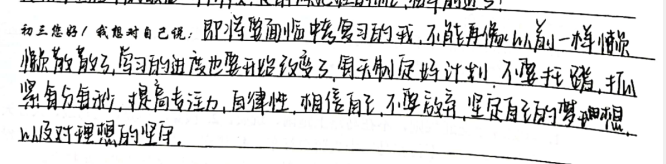 初三您好！我想对自己说：即将要面临中考复习的我，不能再像以前一样懒
懒散散了，学习的进度也要开始改变了，每天制定好计划，不要拄踏，抓
紧每分每秒，提高专注力，自律性，相信自己，不要放弃，坚定自己的梦理想
以及对理想的坚守。